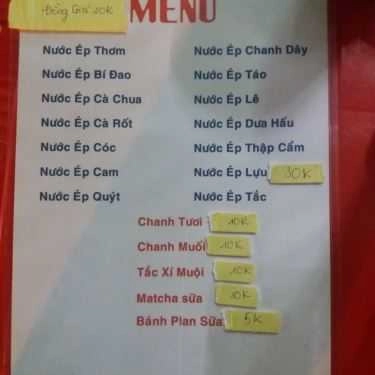 Đồng Giá 20K
MENU
Nước Ép Thơm
Nước Ép Bí Đao
Nước Ép Cà Chua
Nước Ép Cà Rốt
Nước Ép Cóc
Nước Ép Cam
Nước Ép Quýt
Nước Ép Chanh Dây
Nước Ép Táo
Nước Ép Lê
Nước Ép Dưa Hấu
Nước Ép Thập Cẩm
Nước Ép Lựu 30K
Nước Ép Tắc
Chanh Tươi 10K
Chanh Muối 10K
Tắc Xí Muội 10K
Matcha sữa 10K
Bánh Plan Sữa 5K